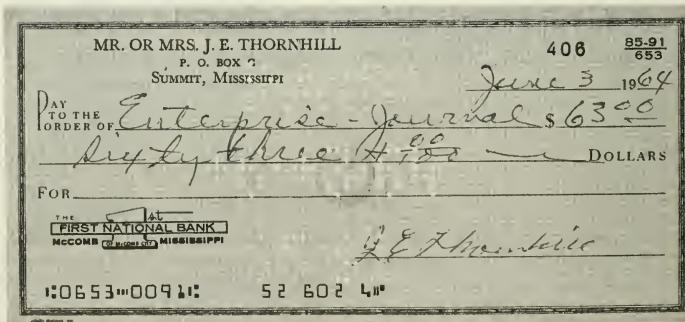 MR. OR MRS. J. E. THORNHILL
406 85-91
653
P. O. BOX
SUMMIT, MISSISSIPPI
June 3 1964
PAY TO THE ORDER OF Enterprise - Journal $ 63 00
Sixty three & 00/100 DOLLARS
FOR
THE 1st
FIRST NATIONAL BANK
McCOMB OF McCOMB CITY MISSISSIPPI
J E Thornhill
⑆0653⑉0091⑆ 52 602 4⑈